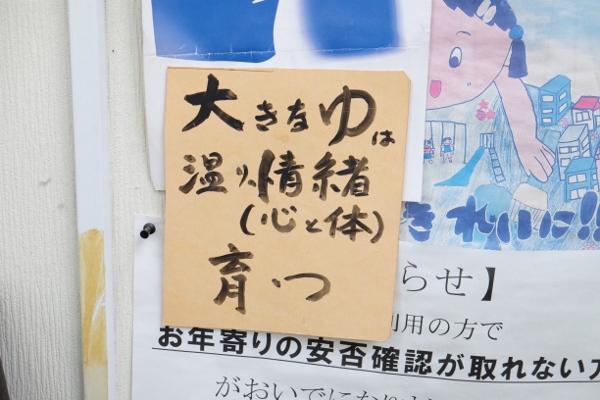 大きなゆは
温い情緒
(心と体)
育つ
きれいに!!
らせ】
利用の方で
お年寄りの安否確認が取れない
がおいでになり